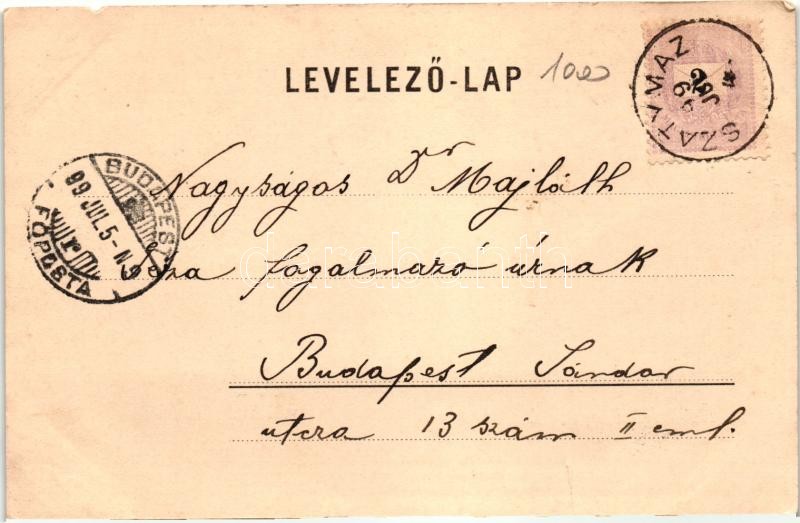 LEVELEZŐ-LAP
1000
SZATYMAZ
Nagyságos Dr Majláth
Géza fogalmazó úrnak
Budapest Sándor
utcza 13 szám II eml.
BUDAPEST
99 JUL 5 - N9
FŐPOSTA
darabanth